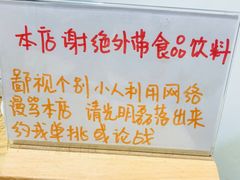 本店谢绝外带食品饮料
鄙视个别小人利用网络
谩骂本店 请光明磊落出来
约我单挑或论战